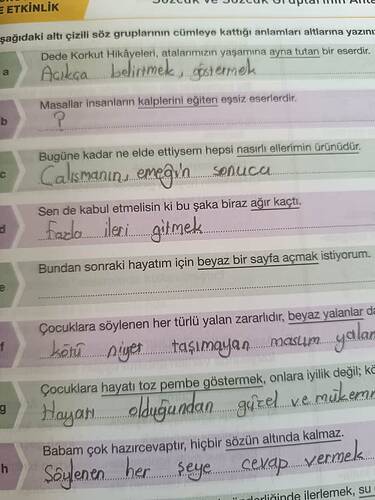 E ETKİNLİK
Sözcük ve Sözcük Gruplarının
şağıdaki altı çizili söz gruplarının cümleye kattığı anlamları altlarına yazını
a
Dede Korkut Hikâyeleri, atalarımızın yaşamına ayna tutan bir eserdir.
Açıkça belirtmek, göstermek
b
Masallar insanların kalplerini eğiten eşsiz eserlerdir.
?
c
Bugüne kadar ne elde ettiysem hepsi nasırlı ellerimin ürünüdür.
Çalışmanın, emeğin sonucu
d
Sen de kabul etmelisin ki bu şaka biraz ağır kaçtı.
fazla ileri gitmek
e
Bundan sonraki hayatım için beyaz bir sayfa açmak istiyorum.
f
Çocuklara söylenen her türlü yalan zararlıdır, beyaz yalanlar da
kötü niyet taşımayan masum yalan
g
Çocuklara hayatı toz pembe göstermek, onlara iyilik değil; kö
Hayatı olduğundan güzel ve mükemm
h
Babam çok hazırcevaptır, hiçbir sözün altında kalmaz.
Söylenen her şeye cevap vermek
ilerlemek, su